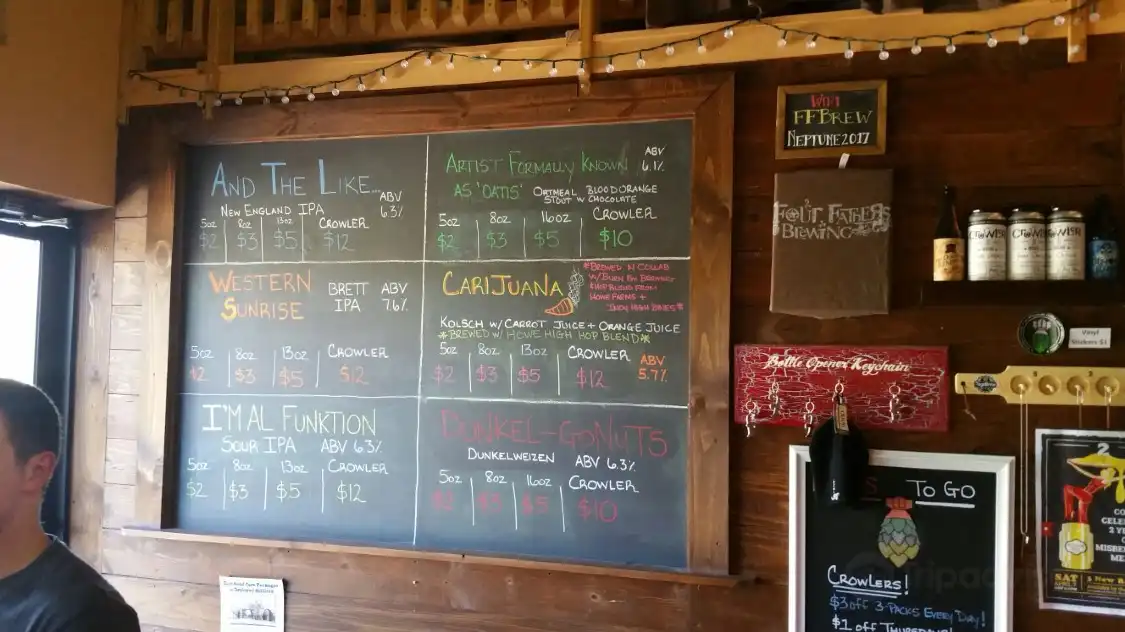 AND THE LIKE...
ABV
6.3%
NEW ENGLAND IPA
5oz 8oz 13oz CROWLER
$2 $3 $5 $12
ARTIST FORMALLY KNOWN
AS 'OATIS'
ABV
6.1%
OATMEAL BLOOD ORANGE
STOUT W/ CHOCOLATE
5oz 8oz 16oz CROWLER
$2 $3 $5 $10
WESTERN
SUNRISE
BRETT
IPA
ABV
7.6%
5oz 8oz 13oz CROWLER
$2 $3 $5 $12
CARIJUANA
*BREWED IN COLLAB
HOWE FARMS +
KOLSCH W/ CARROT JUICE + ORANGE JUICE
*BREWED W/ HOWE HIGH HOP BLEND*
5oz 8oz 13oz CROWLER
$2 $3 $5 $12
ABV
5.7%
I'M AL FUNKTION
SOUR IPA ABV 6.3%
5oz 8oz 13oz CROWLER
$2 $3 $5 $12
DUNKEL-GONUTS
DUNKELWEIZEN ABV 6.3%
5oz 8oz 16oz CROWLER
$2 $3 $5 $10
WIFI
FFBREW
NEPTUNE2017
FOUR FATHERS
BREWING
Vinyl
Stickers $1
Bottle Opener Keychain
TO GO
CROWLERS!
$3 off 3-PACKS EVERY DAY!
$1 off THURSDAYS!
2
SAT